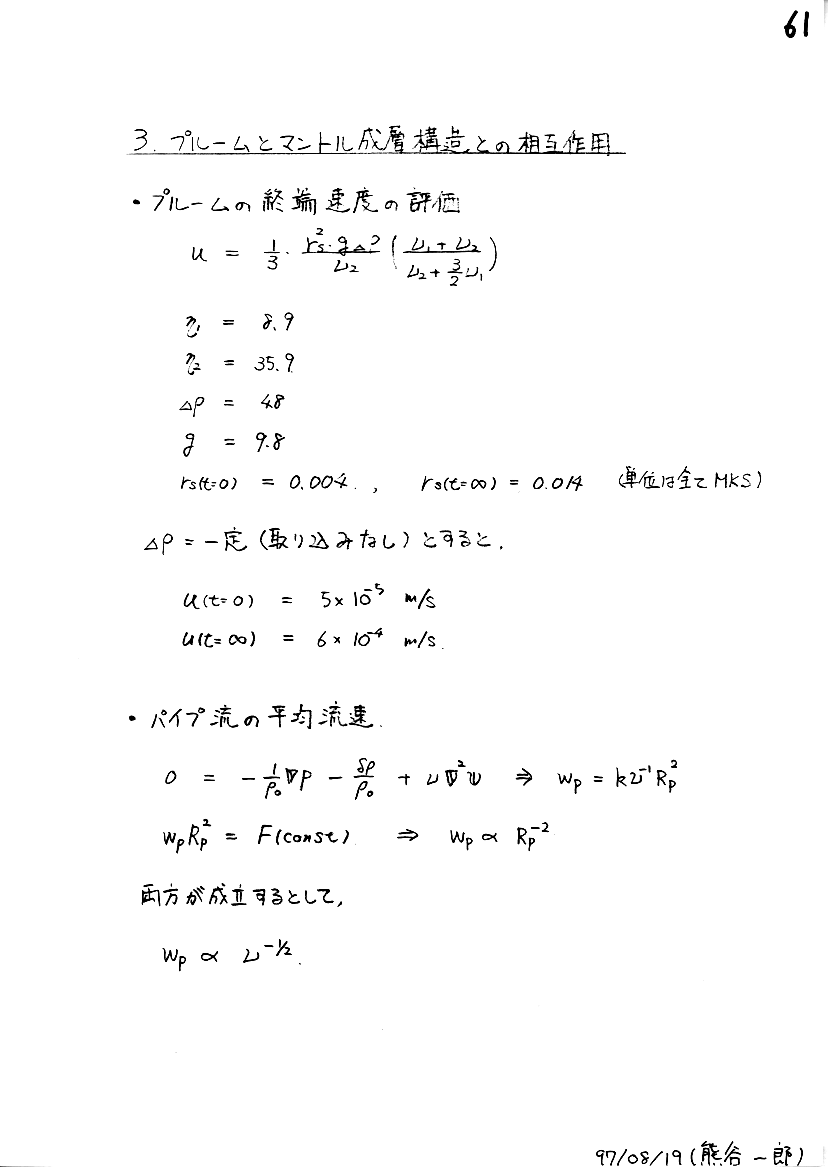 61
3. プルームとマントル成層構造との相互作用
・プルームの終端速度の評価
u = 1/3 · rs²·gΔρ/ν₂ ( (ν₁+ν₂)/(ν₂+3/2 ν₁) )
η₁ = 8.9
η₂ = 35.9
Δρ = 48
g = 9.8
rs(t=0) = 0.004 , rs(t=∞) = 0.014 (単位は全てMKS)
Δρ = 一定 (取り込みなし) とすると,
u(t=0) = 5×10⁻⁵ m/s
u(t=∞) = 6×10⁻⁴ m/s.
・パイプ流の平均流速.
0 = -1/ρ₀ ∇P - δρ/ρ₀ + ν∇²v ⇒ wp = kν⁻¹Rp²
wpRp² = F(const) ⇒ wp ∝ Rp⁻²
両方が成立するとして,
wp ∝ ν⁻¹/².
97/08/19(熊谷一郎)